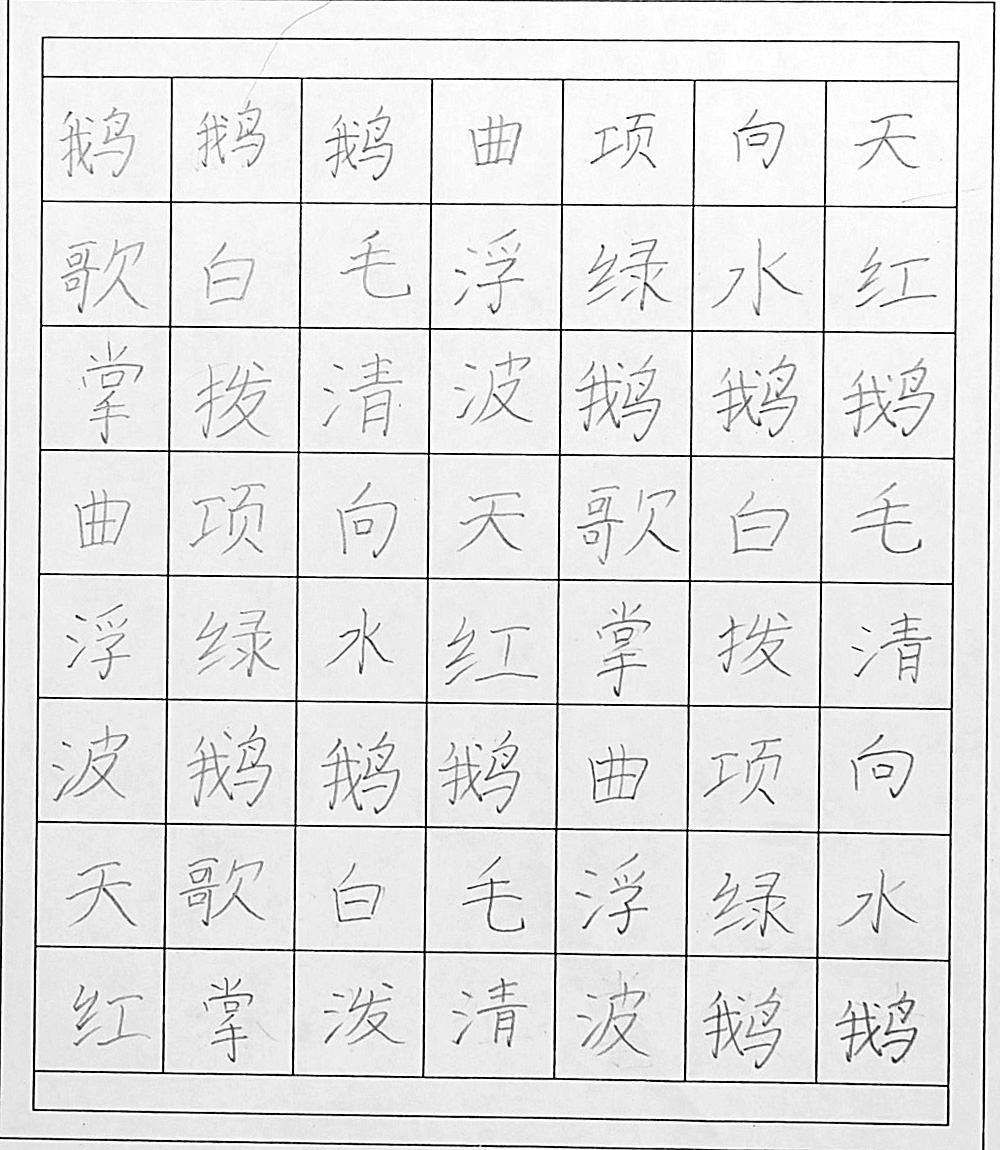 鹅鹅鹅曲项向天
歌白毛浮绿水红
掌拨清波鹅鹅鹅
曲项向天歌白毛
浮绿水红掌拨清
波鹅鹅鹅曲项向
天歌白毛浮绿水
红掌泼清波鹅鹅